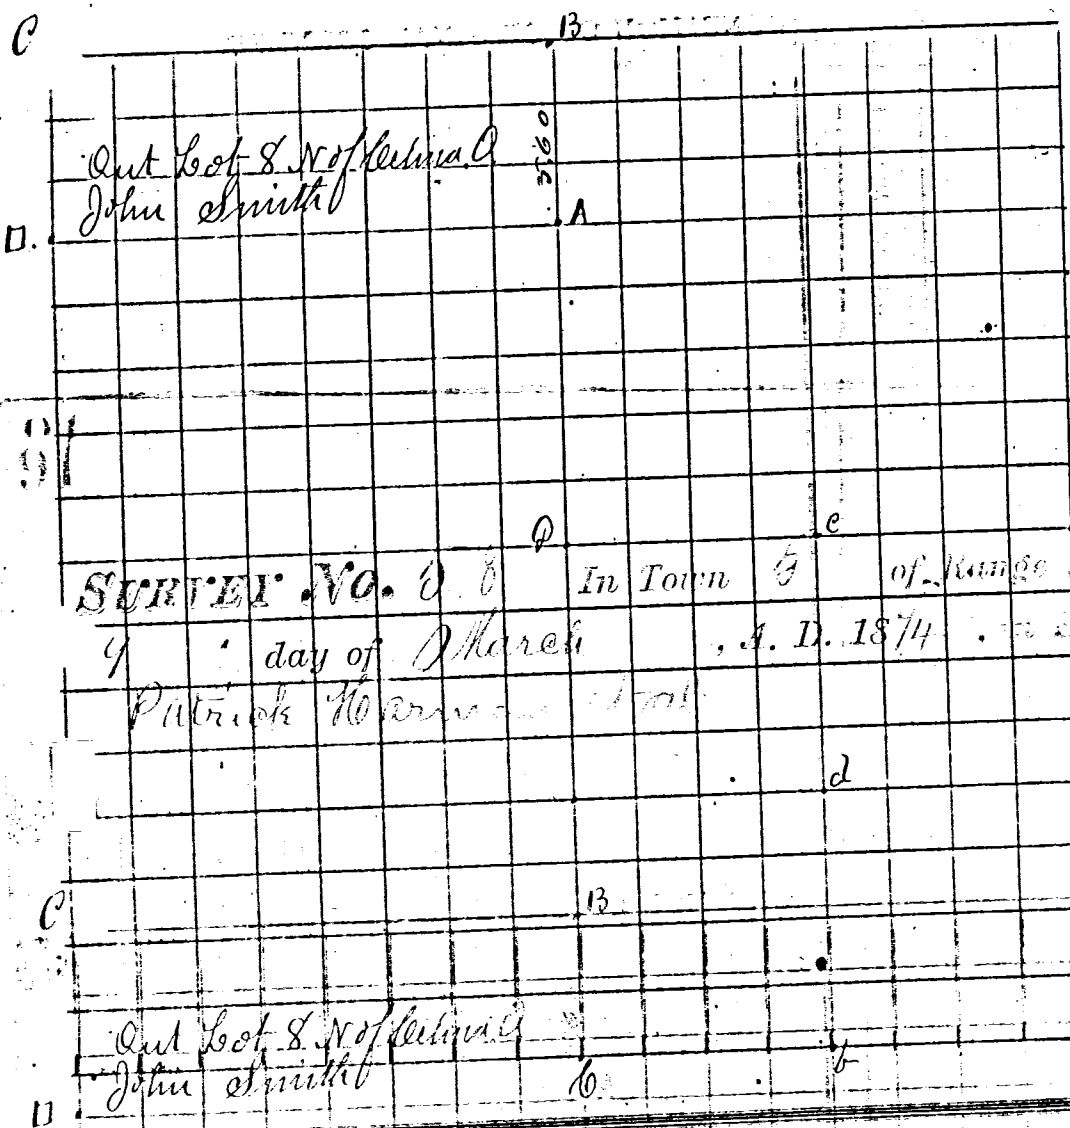 C B
3560
Out Lot 8 N of Celina O
John Smith
D. A
D e
SURVEY No. In Town of Range
9 day of March , A. D. 1874 .
Patrick
d
C B
Out Lot 8 N of Celina O
John Smith
b
D